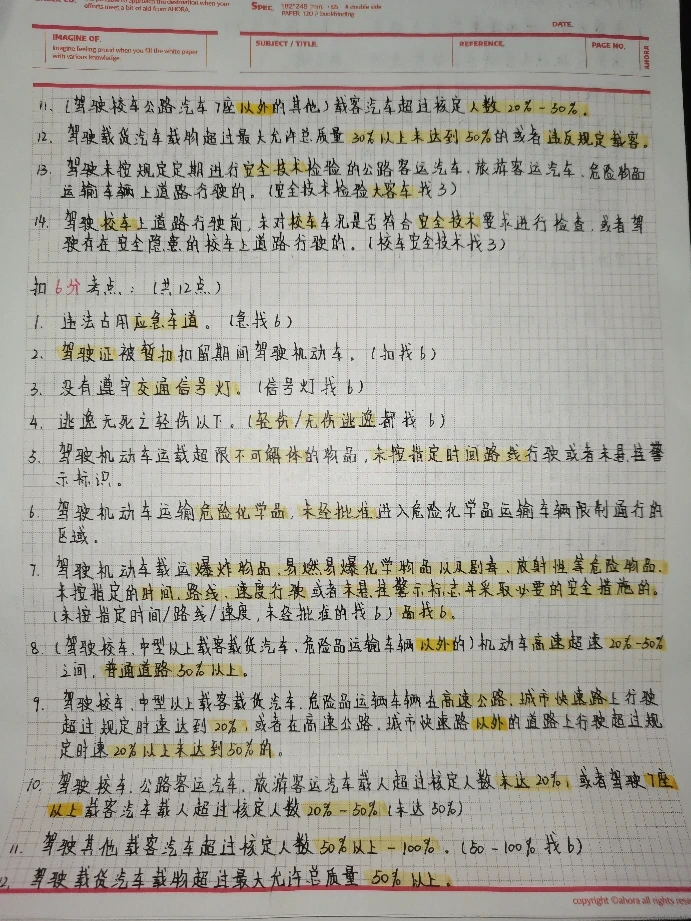 efforts meet a bit of aid from AHORA.
SPEC.
PAPER 120 P bookbinding
DATE.
IMAGINE OF.
Imagine feeling proud when you fill the white paper
with various knowledge.
SUBJECT / TITLE.
REFERENCE.
PAGE NO.
AHORA
11. (驾驶校车公路汽车7座以外的其他)载客汽车超过核定人数20%-50%。
12. 驾驶载货汽车载物超过最大允许总质量30%以上未达到50%的或者违反规定载客。
13. 驾驶未按规定定期进行安全技术检验的公路客运汽车、旅游客运汽车、危险物品
运输车辆上道路行驶的。(安全技术检验大客车找3)
14. 驾驶校车上道路行驶前,未对校车车况是否符合安全技术要求进行检查,或者驾
驶存在安全隐患的校车上道路行驶的。(校车安全技术找3)
扣6分考点:(共12点)
1. 违法占用应急车道。(急找6)
2. 驾驶证被暂扣扣留期间驾驶机动车。(扣找6)
3. 没有遵守交通信号灯。(信号灯找6)
4. 逃逸无死亡轻伤以下。(轻伤/无伤逃逸都找6)
5. 驾驶机动车运载超限不可解体的物品,未按指定时间路线行驶或者未悬挂警
示标识。
6. 驾驶机动车运输危险化学品,未经批准进入危险化学品运输车辆限制通行的
区域。
7. 驾驶机动车载运爆炸物品、易燃易爆化学物品以及剧毒、放射性等危险物品,
未按指定的时间、路线、速度行驶或者未悬挂警示标志并采取必要的安全措施的。
(未按指定时间/路线/速度,未经批准的找6)品找6。
8. (驾驶校车、中型以上载客载货汽车、危险品运输车辆以外的)机动车高速超速20%-50%
之间,普通道路50%以上。
9. 驾驶校车、中型以上载客载货汽车、危险品运辆车辆在高速公路、城市快速路上行驶
超过规定时速达到20%,或者在高速公路、城市快速路以外的道路上行驶超过规
定时速20%以上未达到50%的。
10. 驾驶校车、公路客运汽车、旅游客运汽车载人超过核定人数未达20%,或者驾驶7座
以上载客汽车载人超过核定人数20%-50%(未达50%)
11. 驾驶其他载客汽车超过核定人数50%以上-100%。(50-100%找6)
12. 驾驶载货汽车载物超过最大允许总质量50%以上。
copyright ©ahora all rights rese